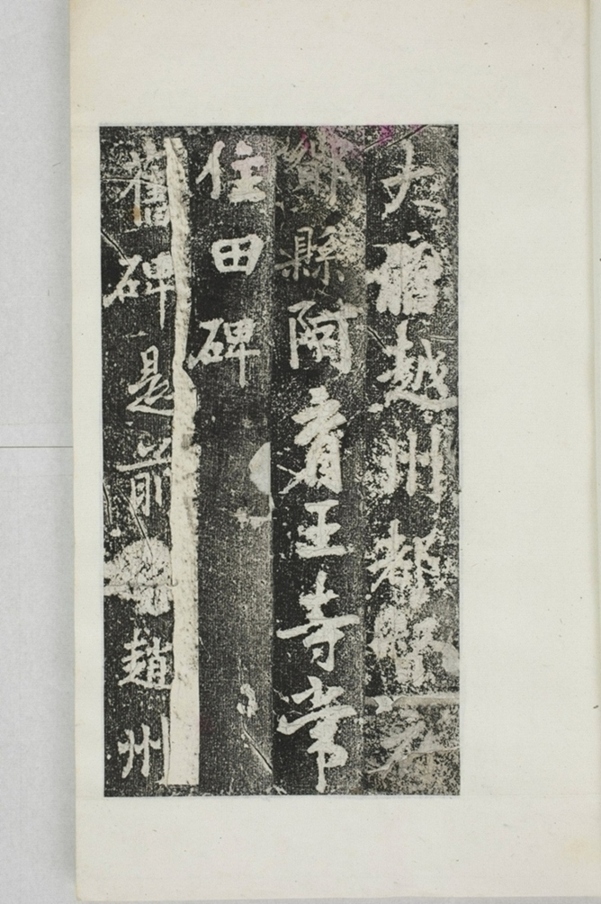 大唐越州都督府
鄮縣阿育王寺常
住田碑
舊碑是前趙州